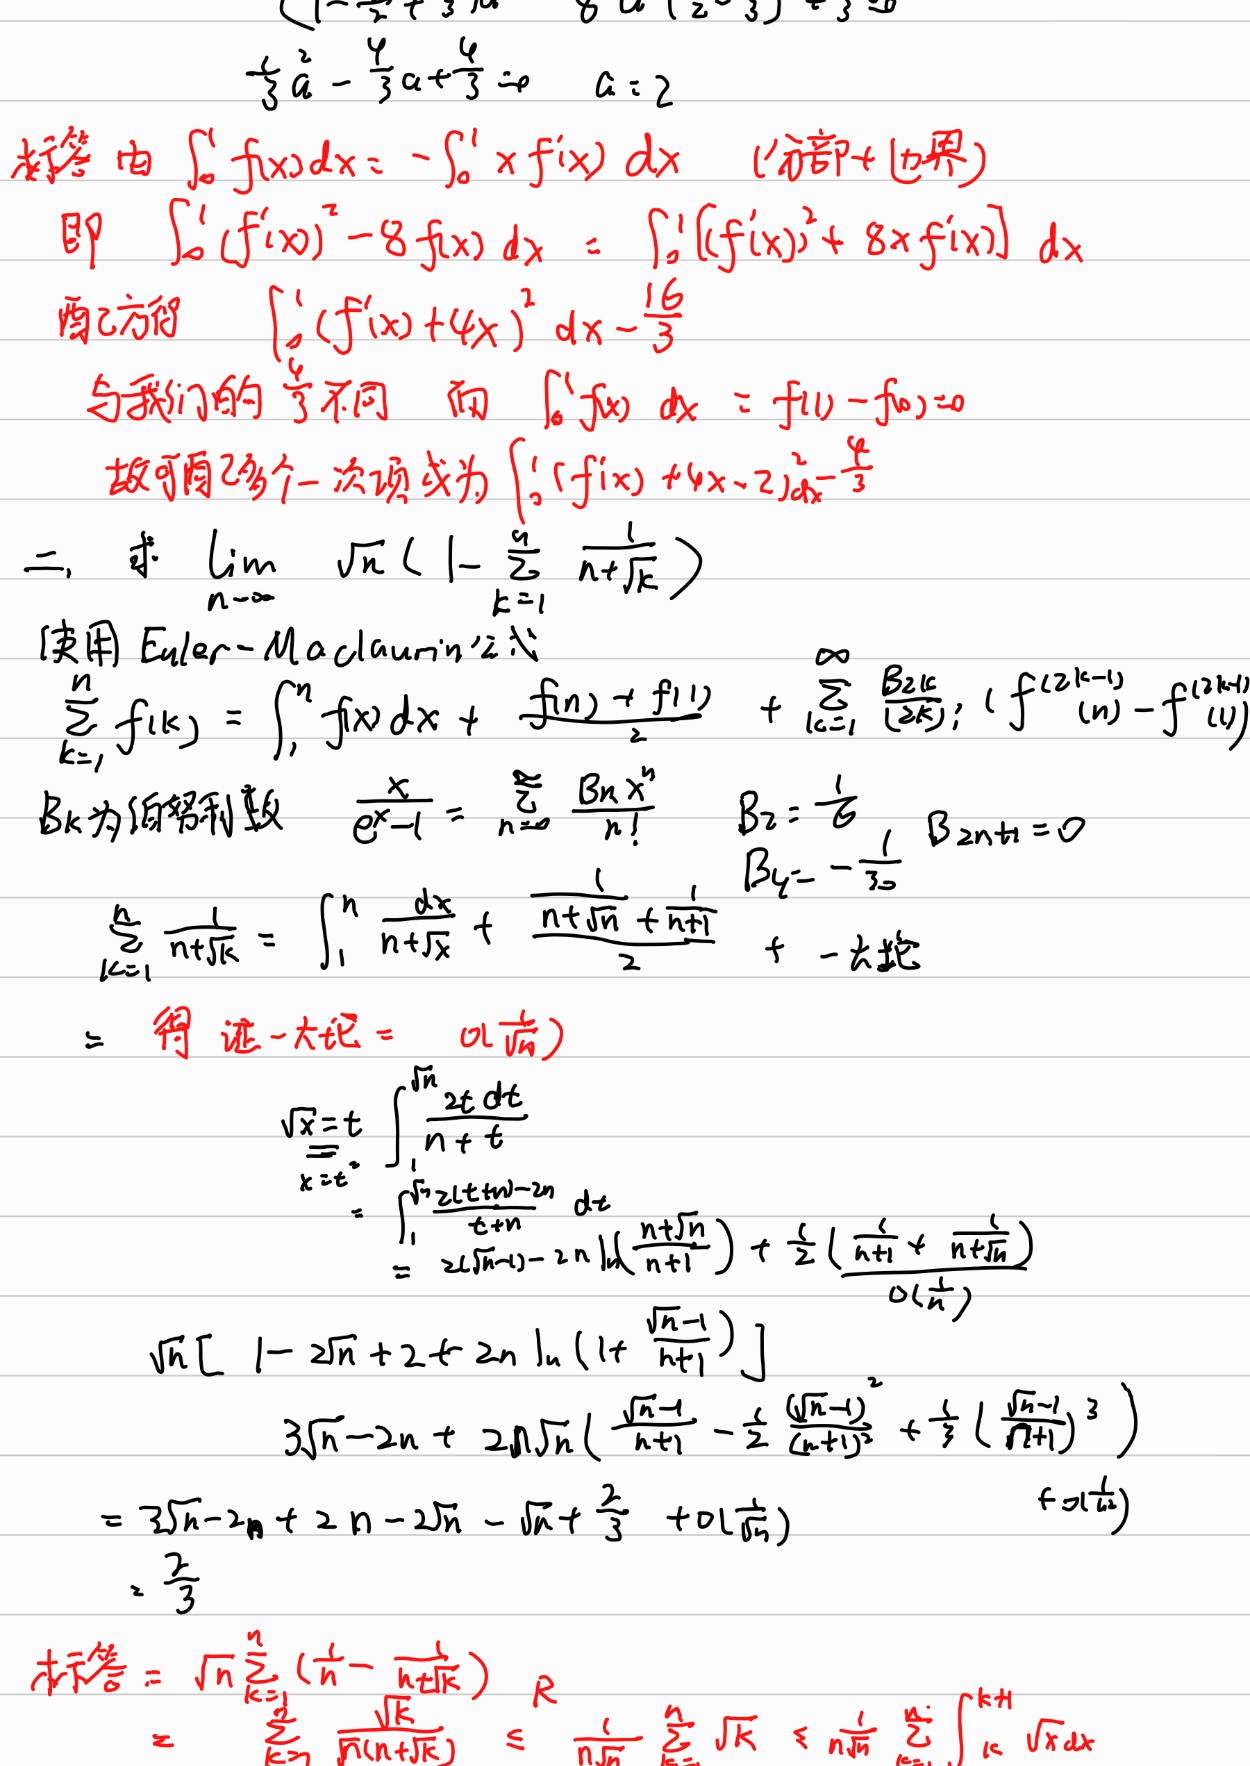 1/3 a² - 4/3 a + 4/3 = 0   a = 2
标答 由 ∫₀¹ f(x) dx = -∫₀¹ x f'(x) dx （分部+边界）
即 ∫₀¹ (f'(x))² - 8f(x) dx = ∫₀¹ [(f'(x))² + 8x f'(x)] dx
配方得 ∫₀¹ (f'(x) + 4x)² dx - 16/3
与我们的 4/3 不同 而 ∫₀¹ f'(x) dx = f(1) - f(0) = 0
故可配多个一次项成为 ∫₀¹ (f'(x) + 4x - 2)² dx - 4/3
二、求 lim n→∞ √n ( 1 - Σ_{k=1}^{n} 1/(n+√k) )
使用 Euler-Maclaurin 公式
Σ_{k=1}^{n} f(k) = ∫₁ⁿ f(x) dx + (f(n) + f(1))/2 + Σ_{k=1}^{∞} B_{2k}/(2k)! ( f^{(2k-1)}(n) - f^{(2k-1)}(1) )
B_k 为伯努利数 x/(e^x - 1) = Σ_{n=0}^{∞} B_n x^n / n!   B₂ = 1/6   B_{2n+1} = 0
B₄ = -1/30
Σ_{k=1}^{n} 1/(n+√k) = ∫₁ⁿ dx/(n+√x) + (1/(n+√n) + 1/(n+1))/2 + 一大坨
= 得证一大坨 = o(1/√n)
√x = t, x = t² ∫₁^{√n} 2t dt/(n+t)
= ∫₁^{√n} (2(t+n) - 2n)/(t+n) dt
= 2(√n - 1) - 2n ln((n+√n)/(n+1)) + 1/2 (1/(n+1) + 1/(n+√n))
o(1/n)
√n [ 1 - 2√n + 2 + 2n ln(1 + (√n-1)/(n+1)) ]
3√n - 2n + 2n√n ( (√n-1)/(n+1) - 1/2 (√n-1)²/(n+1)² + 1/3 ((√n-1)/(n+1))³ )
+ o(1/n²)
= 3√n - 2n + 2n - 2√n - √n + 2/3 + o(1/√n)
= 2/3
标答 = √n Σ_{k=1}^{n} (1/n - 1/(n+√k)) R
= Σ √k/(√n(n+√k)) ≤ 1/(n√n) Σ √k ≤ 1/(n√n) Σ ∫_k^{k+1} √x dx